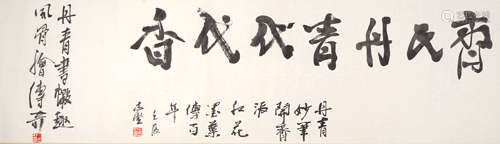 齊氏丹青代代香
丹青
妙筆
開齊
派
紅花
墨葉
傳百
年
壬辰
丹青書懷趣
風骨繪傳奇